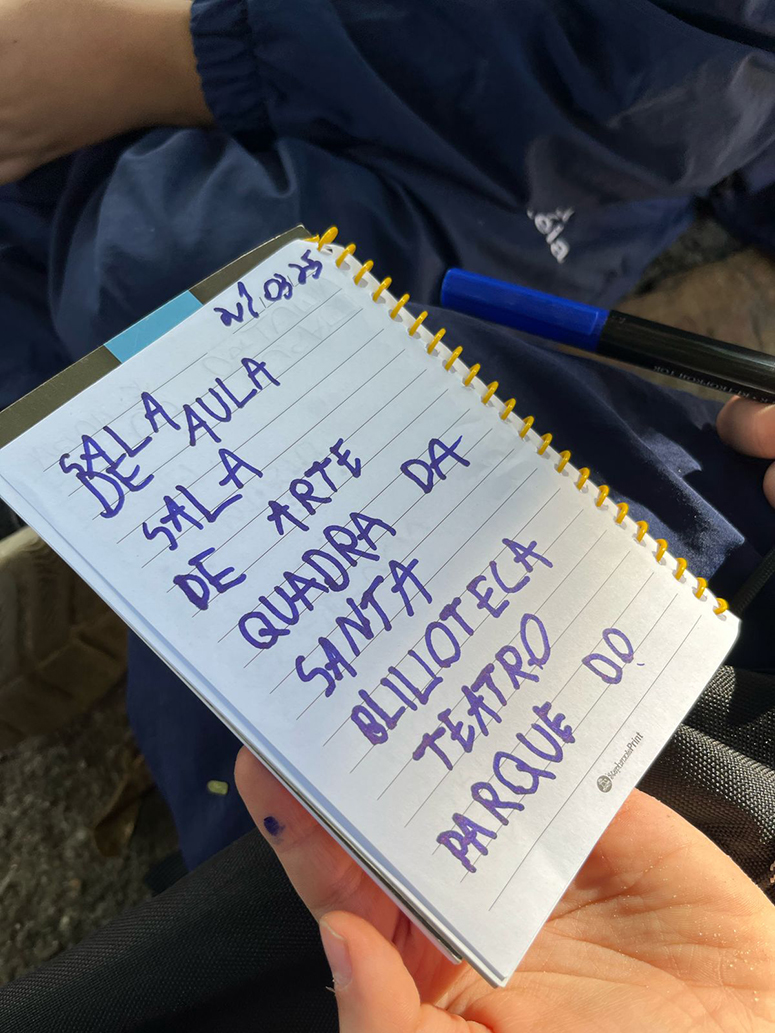 21 03 25
SALA
DE AULA
SALA
DE ARTE
QUADRA DA
SANTA
BLILIOTECA
TEATRO
PARQUE DO